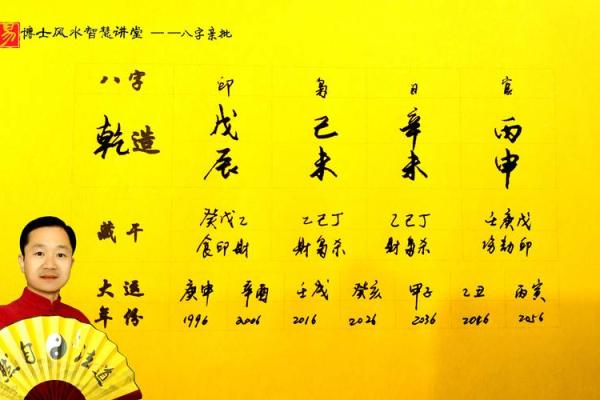 易 博士风水智慧讲堂 ——八字亲批
八字 印 枭 日 官
乾造 戊 己 辛 丙
辰 未 未 申
藏干 癸戊乙 乙己丁 乙己丁 壬庚戊
食印财 财枭杀 财枭杀 伤劫印
大运 庚申 辛酉 壬戌 癸亥 甲子 乙丑 丙寅
年份 1996 2006 2016 2026 2036 2046 2056
然自法道